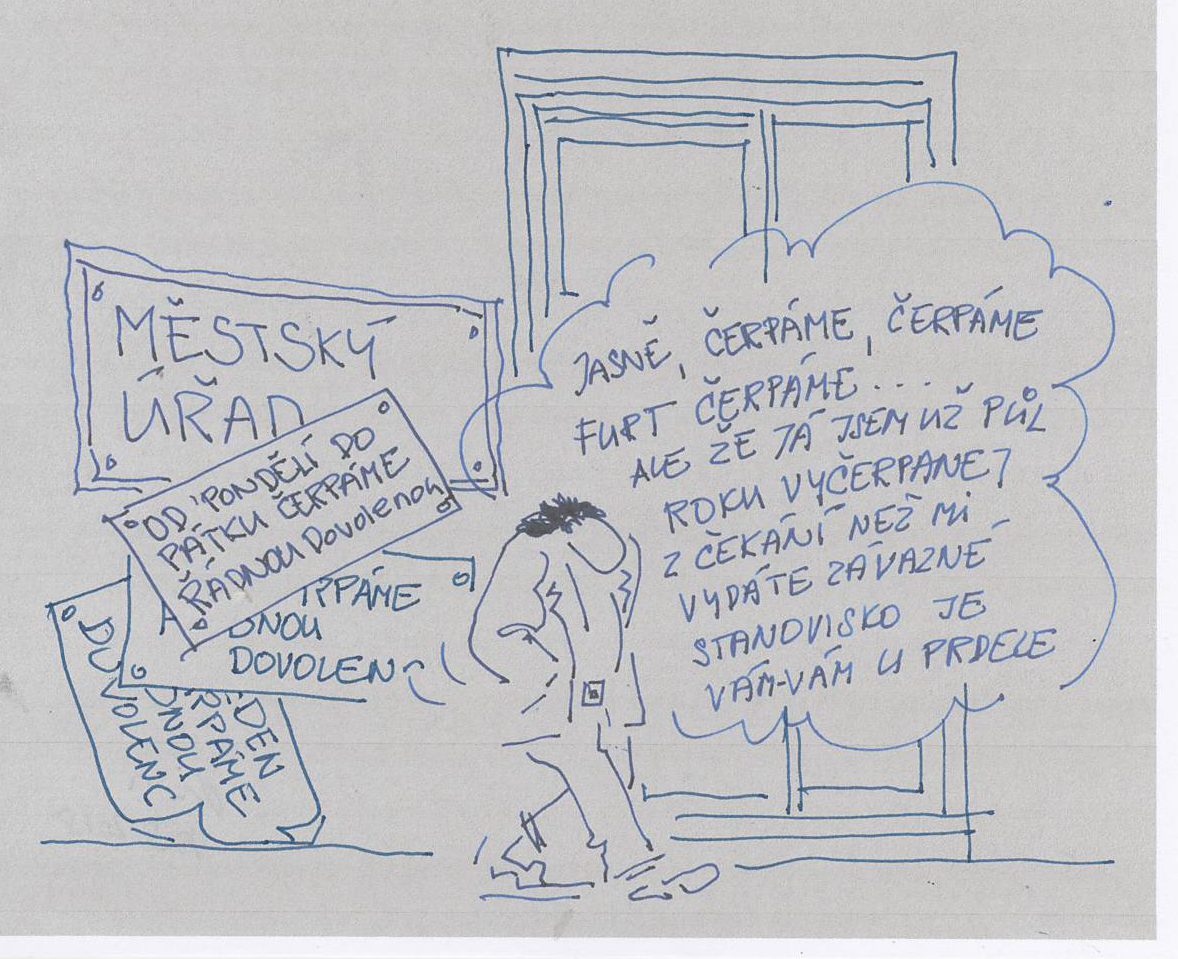 MĚSTSKÝ
ÚŘAD
OD PONDĚLÍ DO
PÁTKU ČERPÁME
ŘÁDNOU DOVOLENOU
RPÁME
DNOU
DOVOLEN
DEN
RPÁME
DNOU
VOLENC
JASNĚ, ČERPÁME, ČERPÁME
FURT ČERPÁME....
ALE ŽE JÁ JSEM UŽ PŮL
ROKU VYČERPANEJ
Z ČEKÁNÍ NEŽ MI
VYDÁTE ZÁVAZNÉ
STANOVISKO JE
VÁM-VÁM U PRDELE